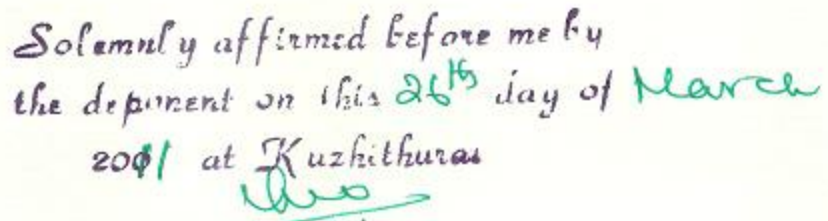 Solemnly affirmed before me by
the deponent on this 26th day of March
2011 at Kuzhithurai